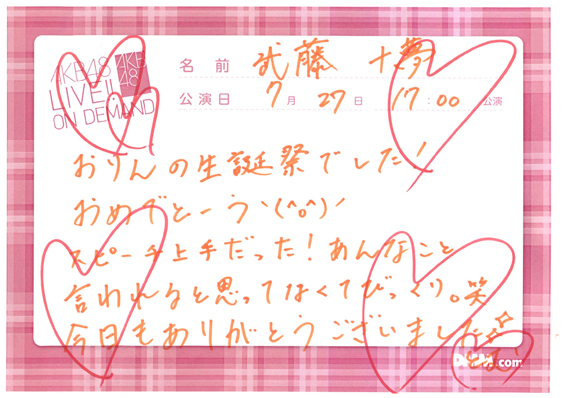 AKB48
LIVE!!
ON DEMAND
AKB
48
名前 武藤 十夢
公演日 7月 27日 17:00 公演
おりんの生誕祭でした!
おめでとーう`(^o^)´
スピーチ上手だった!あんなこと
言われると思ってなくてびっくり。笑
今日もありがとうございました
DMM.com